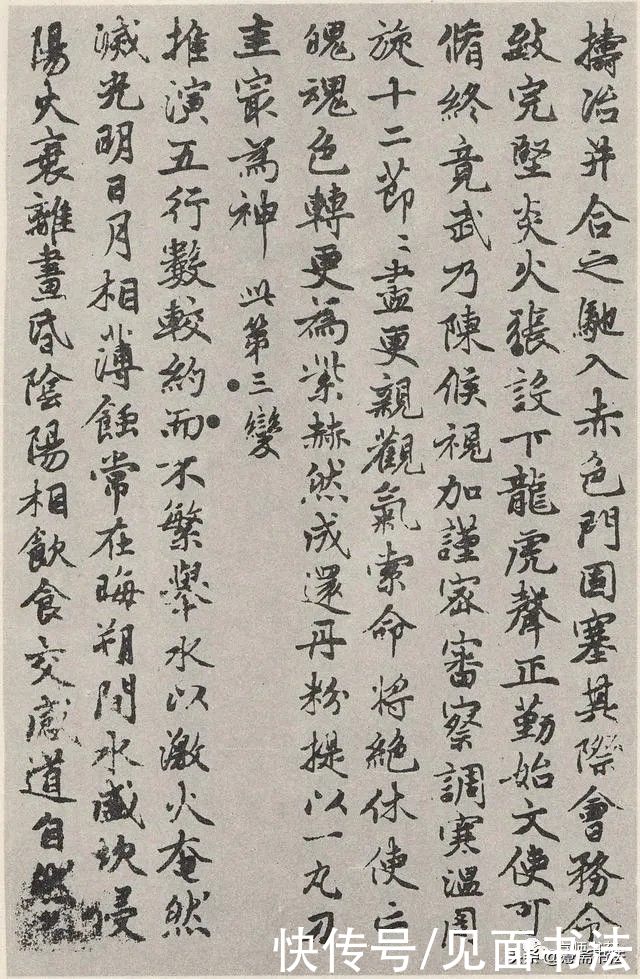 擣治并合之馳入赤色門固塞其際會務令
致完堅炎火張設下龍虎聲正勤始文使可
脩終竟武乃陳候視加謹密審察調寒溫周
旋十二節〻盡更親觀氣索命將絕休使亡
魄魂色轉更為紫赫然成還丹粉提以一丸刀
圭最為神 此第三變
推演五行數較約而不繁舉水以激火奄然
滅光明日月相薄蝕常在晦朔間水盛坎侵
陽火衰離晝昏陰陽相飲食交感道自然
快传号/见面书法